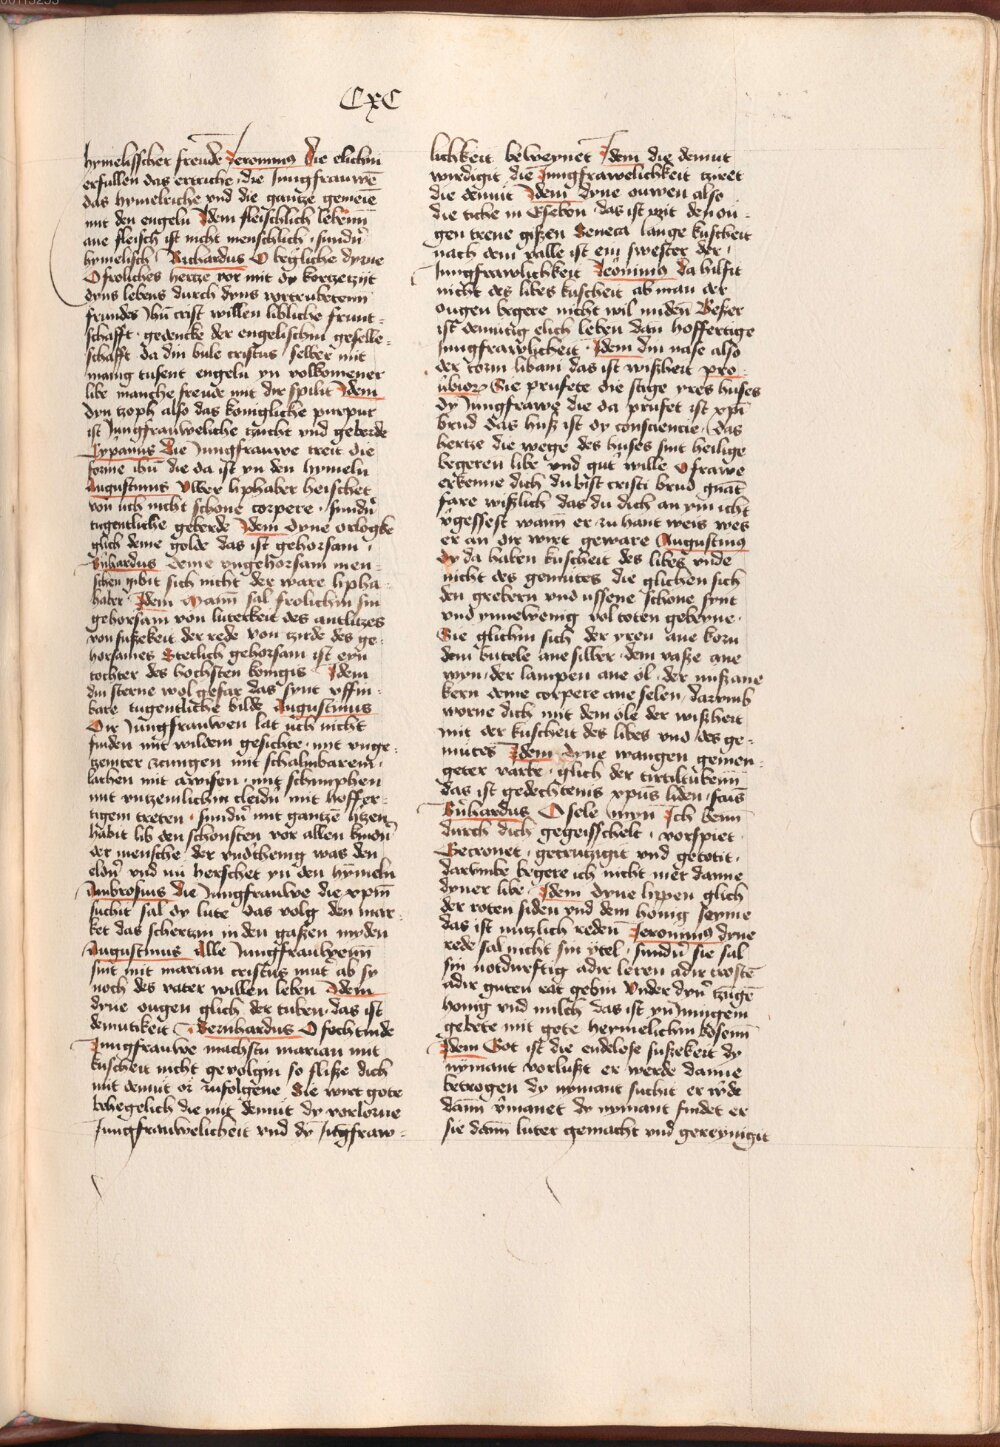 CxC
hymelisscher freude Jeronimus Die elichin
erfullen das ertriche die Jungfrauwē
das hymelriche vnd die gantze gemeıē
mit den engeln Idem fleischlich lebenn
ane fleisch ist nicht menschlich sundır
hymelisch Richardus O begliche dyrne
O froliches hertze vor mit dy kortzezijt
dyns lebens durch dyns
frundes Ihū crist willen libliche frunt-
schafft gedencke der engelischin geselle-
schafft da din bule cristus selber mit
manig tusent engeln yn volkomener
libe manche freude mit dir spilit Idem
Dyn tzoph also das konigliche purpur
ist Jungfrauweliche tzucht vnd geberde
Cyprianus Die Jungfrauwe treit die
forme ihū die da ist yn den hymeln
Augustinus Vwer liphaber heischet
von uch nicht schone corpere sundır
tugentliche geberde Idem dyne orlogke
glich deme golde das ist gehorsam
Bernhardus deme vngehorsam men-
schen gibit sich nicht der ware lipha-
haber Idem Wann sal frolichin sin
gehorsam von luterkeit des antlitzes
von sußekeit der rede von tzirde des ge-
horsames Stetlich gehorsam ist eyn
tochter des hochsten konigis Idem
din sterne wol gefar das synt vffin-
bare tugentliche bilde Augustinus
Dir Jungfrauwen lat uch nicht
finden mit wildem gesichte mit vnge-
zemter zcungen mit schalmbarem
lachen mit awisen mit schimphen
mit vntzemlichin cleidır mit hoffer-
tigem treten sundır mit gantzē hızen
habit lib den schonsten vor allen kinden
der mensche der vnderthenig was den
eldın vnd nu herschet yn den hymeln
Ambrosius die Jungfrauwe die xpm
suchit sal dy lute das volg den mar-
ket das schertzin in den gaßen myden
Augustinus Alle Jungfrauwenn
sint mit marian cristus mut ab sy
noch des vater willen leben Idem
dyne ougen glich der tuben das ist
demutikeit Bernhardus O fochtinde
Jungfrauwe machstu marian mit
kuscheit nicht gevolgin so fliße dich
mit demut or zufolgene Sie wirt gote
behegelich die mit demut dy vorlorne
Jungfrauwelicheit vnd dy Jungfraw-
lichkeit beweynet Idem die demut
wirdigit die Jungfrawelichkeit tziret
die demut Idem dyne ouwen also
die tiche in Esebon das ist mit den ou-
gen trene gißen Seneca lange kuscheit
nach dem valle ist eyn swester der
Jungfrawlichkeit Jeronimus da hilfit
nicht des libes kuscheit ab man der
ougen begere nicht wil miden Beßer
ist demutig elich leben dan hoffertige
Jungfrawlicheit Idem din nase also
der torm libani das ist wißheit pro-
uerbiorum Sie prufete die stige yres huses
Dy Jungfrawe die da prufet ist xpi
brud das huß ist dy consciencie das
hertze die wege des huses sint heilige
begeren libe vnd gut wille O frawe
erkenne dich du bist cristi brud
fare wißlich das du dich an ym icht
vgessest wann er zu hant weis wes
er an dir wirt geware Augustinus
Dy da haben kuscheit des libes vnde
nicht des gemutes die glichen sich
den grebern vnd ussene schone synt
vnd ynnewenig vol toten gebeyne
Sie glichin sich der yren ane korn
dem butele ane silber dem vaße ane
wyn der lampen ane ol der nuß ane
kern deme corpere ane selen darvmb
worne dich mit dem ole der wißheit
mit der kuscheit des libes vnd des ge-
mutes Idem Dyne wangen gemen-
geter varbe glich der tirtiltubenn
das ist gedechtenis xpūs liden
Bernhardus O sele myn Ich benn
durch dich gegeisschelt vorspiet
Gecronet getruzigit vnd getotit
darvmbe begere ich nicht mer danne
dyner libe Idem dyne lippen glich
der roten siden vnd dem honig seyme
das ist nutzlich reden Jeronimus dyne
rede sal nicht sin ytel sundır sie sal
sin notdurftig adir leren adir trostē
adir guten rat gebin Vnder dyn tzūgē
honig vnd milch das ist yn Jnnigem
gebete mit gote heymelichin kosenn
Idem Got ist die endelose sußekeit dy
nymant vorlußt er werde danne
betrogen dy nymant suchit er w̄de
dann vmanet dy nymant findet er
sie dann luter gemacht vnd gereynigit